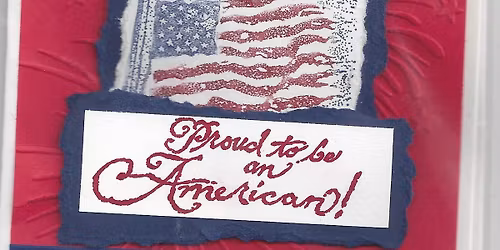 Proud to be
an
American!